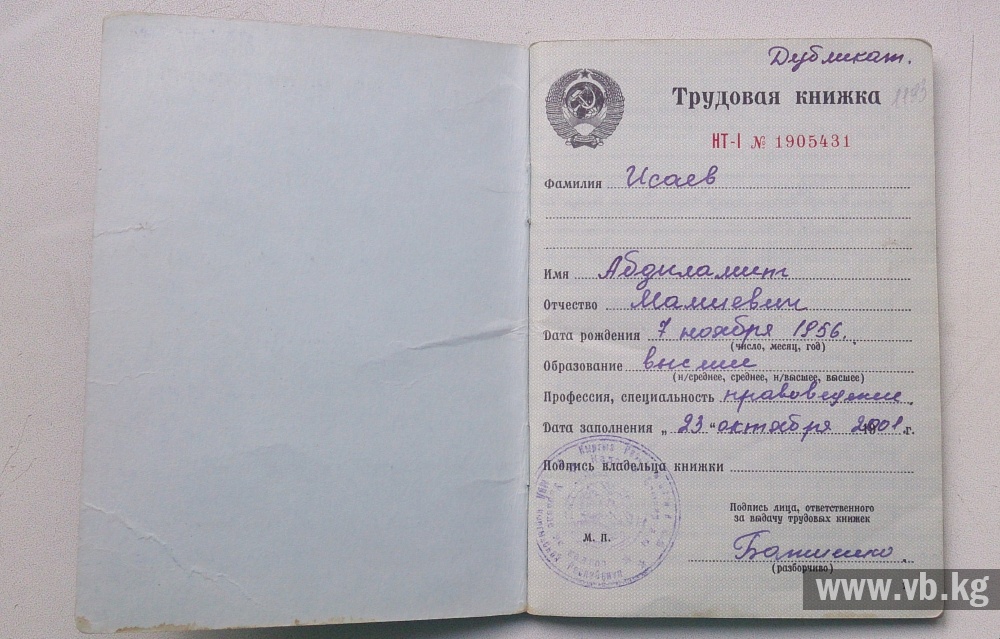 Дубликат.
Трудовая книжка
1193
НТ-I № 1905431
Фамилия Исаев
Имя Абдиламит
Отчество Мамиевич
Дата рождения 7 ноября 1956.
(число, месяц, год)
Образование высшее
(н/среднее, среднее, н/высшее, высшее)
Профессия, специальность правоведение
Дата заполнения „ 23 “ октября 2001 г.
Подпись владельца книжки
Подпись лица, ответственного
за выдачу трудовых книжек
М. П.
(разборчиво)
www.vb.kg